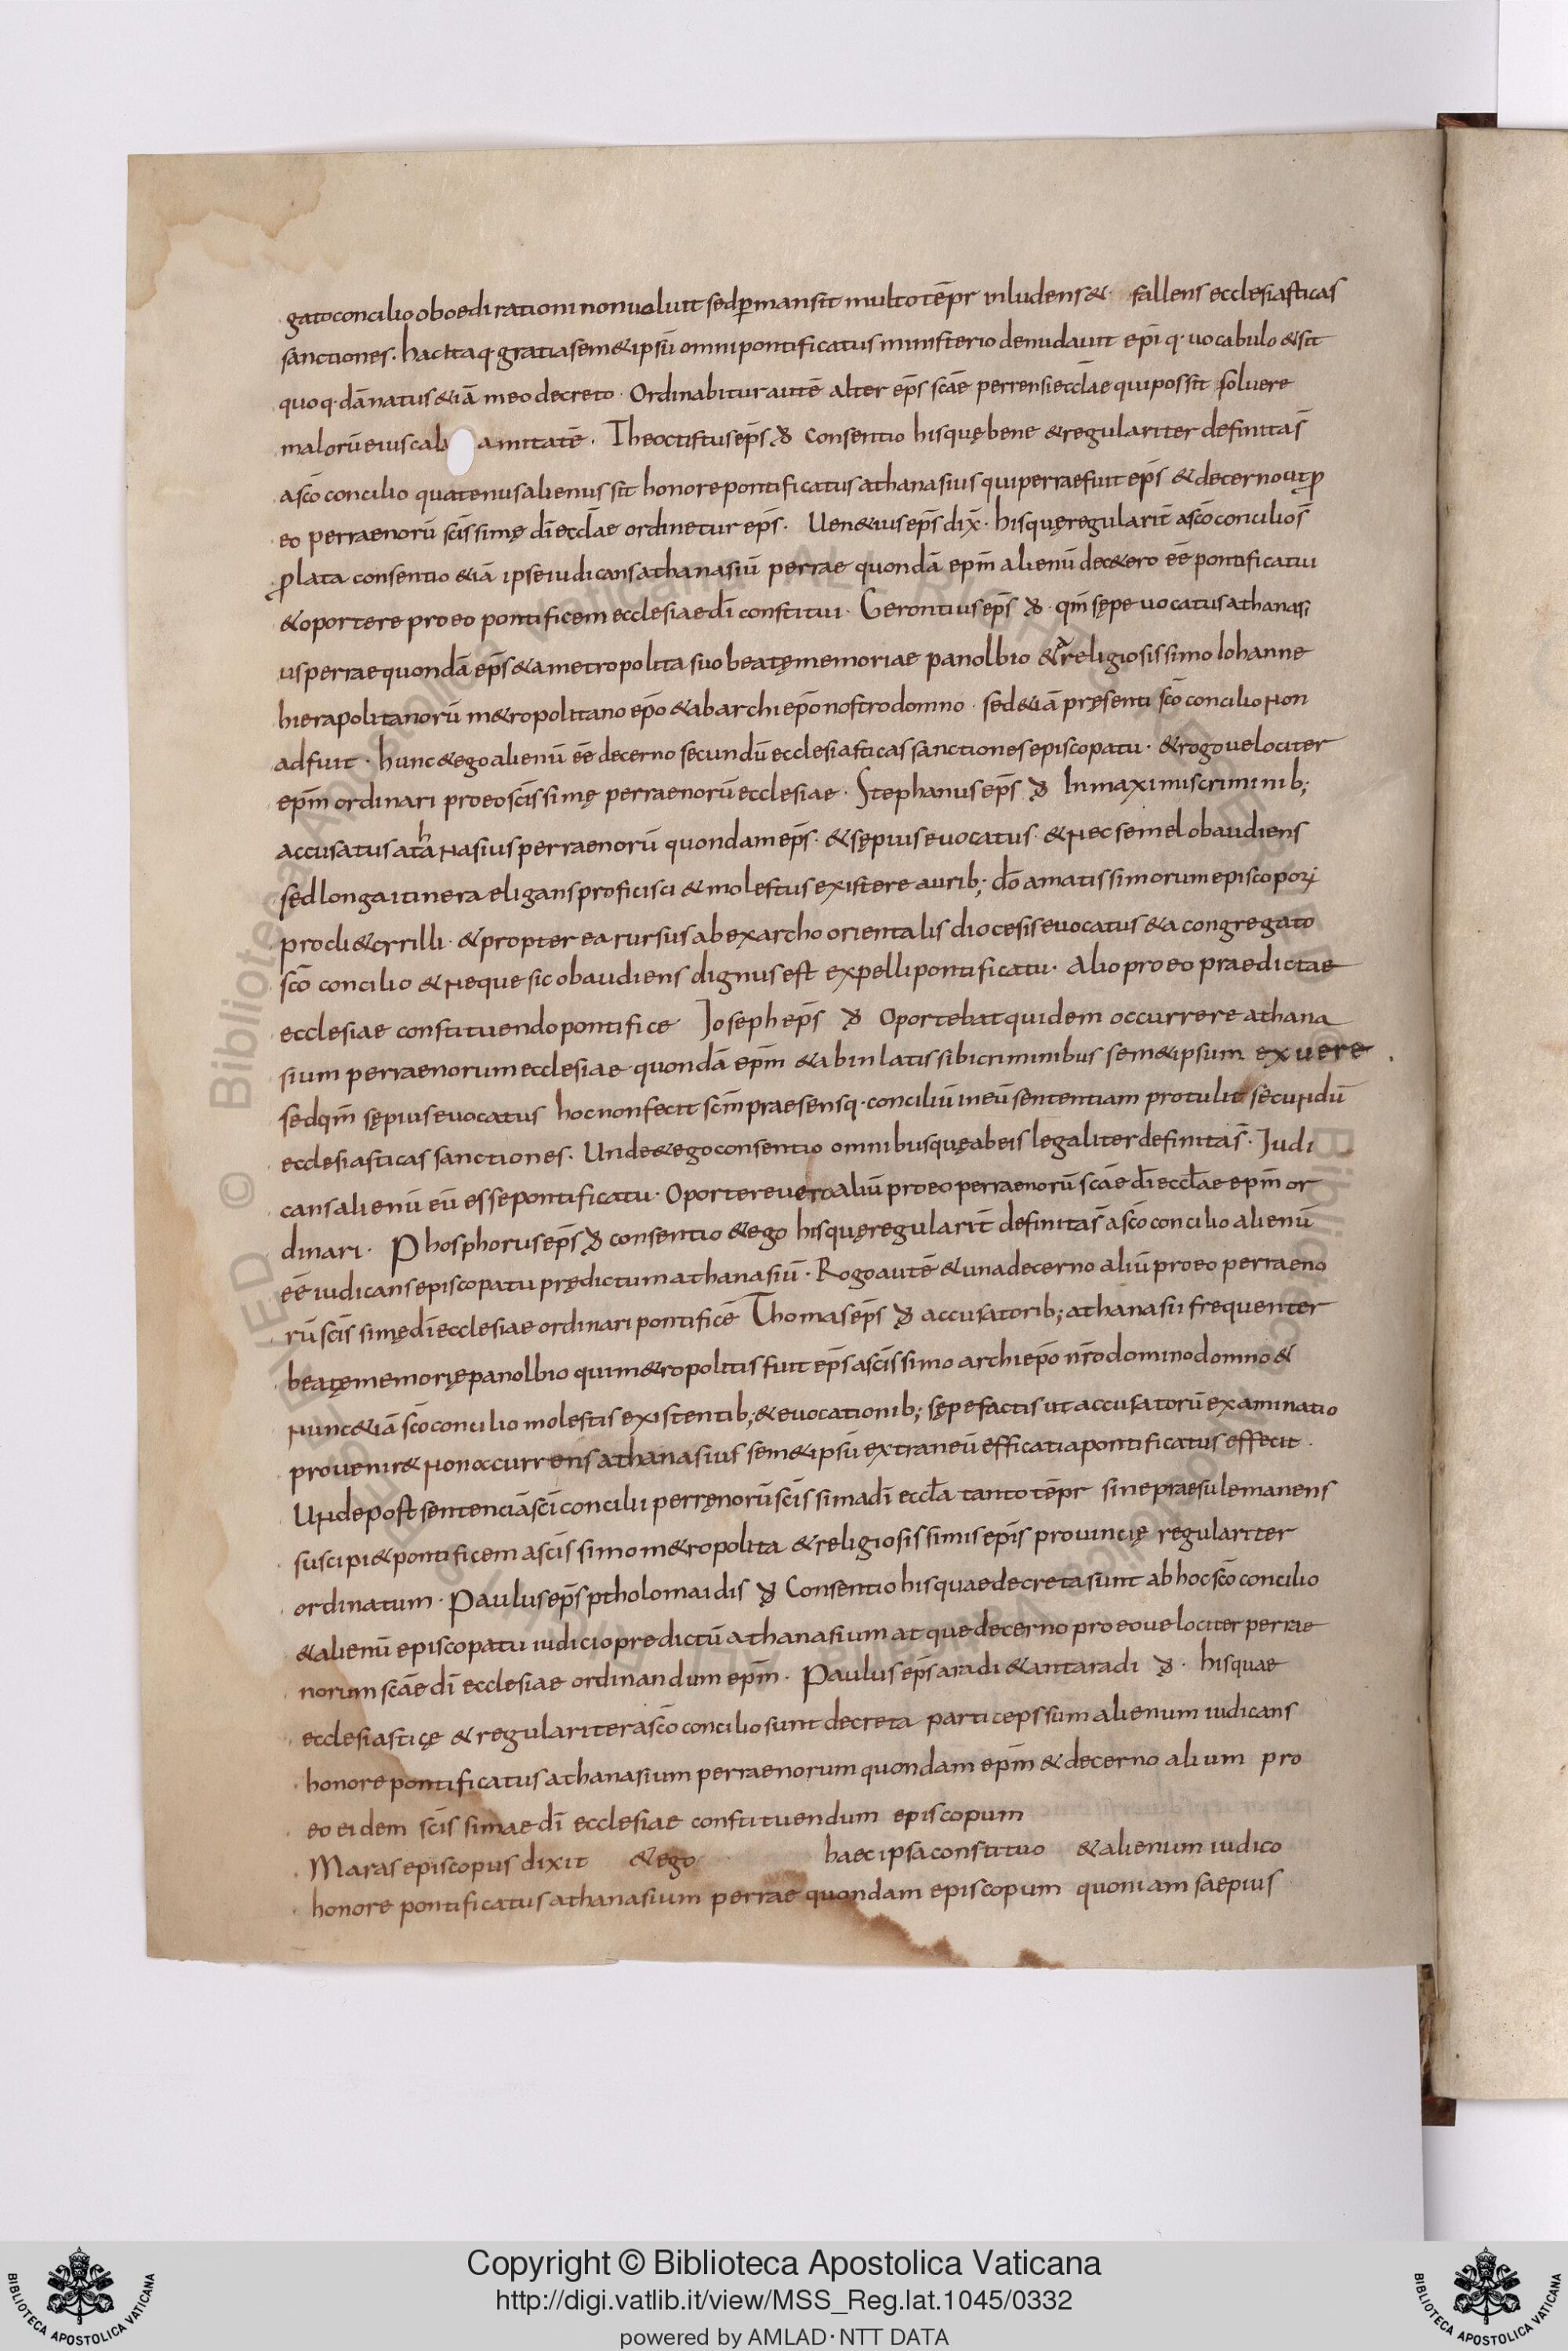 gato concilio oboediratiom non uoluit sed p̱mansit multo tēpr inludens & fallens ecclesiasticas
sanctiones. hac itaq· gratia sem&ipsū omni pontificatus ministerio denudauit ep̄i q· uocabulo & sit
quoq· dānatus &iā meo decreto · Ordinabitur autē alter ep̄s sc̄ae perrensi eccl̄ae qui possit soluere
malorū eius cala amitatē. Theoctistus ep̄s d̄ Consentio his quę bene & regulariter definitas̄
a sc̄o concilio quatenus alienus sit honore pontificatus athanasius qui perrae fuit ep̄s & decerno ut ꝓ
eo perraenorū sc̄issimę dī eccl̄ae ordinetur ep̄s. Uen&ius ep̄s dix̄· his quę regularit̄ a sc̄o concilio s̄
ꝓlata consentio &iā ipse iudicans athanasiū perrae quondā ep̄m alienū dec&ero ēe pontificatui
& oportere pro eo pontificem ecclesiae dī constitui · Gerontius ep̄s d̄ · qm̄ sępe uocatus athanasi
us perrae quondā ep̄s & a metropolita suo beatę memoriae panolbio & a religiosissimo Iohanne
hierapolitanorū m&ropolitano ep̄o & ab archiep̄o nostro domno · sed &iā pręsenti sc̄o concilio non
adfuit · hunc & ego alienū ēe decerno secundū ecclesiasticas sanctiones episcopatu · & rogo uelociter
ep̄m ordinari pro eo sc̄issimę perraenorū ecclesiae · Stephanus ep̄s d̄ In maximis criminib;
accusatus atahnasius perraenorū quondam ep̄s · & sępius euocatus · & nec semel obaudiens
sed longa itinera eligans proficisci & molestus existere aurib; dō amatissimorum episcoporꝝ
procli & cyrilli · & propter ea rursus ab exarcho orientalis diocesis euocatus & a congregato
sc̄o concilio & neque sic obaudiens dignus est expelli pontificatu · Alio pro eo praedictae
ecclesiae constituendo pontifice Joseph ep̄s d̄ Oportebat quidem occurrere athana
sium perraenorum ecclesiae quondā ep̄m & ab inlatis sibi criminibus sem&ipsum exuere
sed qm̄ sępius euocatus hoc non fecit sc̄m praesensq· conciliū in eū sententiam protulit secundū
ecclesiasticas sanctiones. Unde & ego consentio omnibus quę ab eis legaliter definitas̄. Judi
cans alienū eū esse pontificatu · Oportere uero aliū pro eo perraenorū sc̄ae dī eccl̄ae ep̄m or
dinari · Phosphorus ep̄s d̄ consentio & ego his quę regularit̄ definitas̄ a sc̄o concilio alienū
ēe iudicans episcopatu prędictum athanasiū · Rogo autē & una decerno aliū pro eo perraeno
rū sc̄issimę dī ecclesiae ordinari pontificē Thomas ep̄s d̄ accusatorib; athanasii frequenter
beatę memorię panolbio qui m&ropolitis fuit ep̄s a sc̄issimo archiep̄o nr̄o domino domno &
nunc &iā sc̄o concilio molestis existentib; & euocationib; sępe factis ut accusatorū examinatio
prouenir& non occurrens athanasius sem&ipsū extraneū efficatia pontificatus effecit ·
Unde post sentenciā sc̄i concilii perręnorū sc̄issima dī eccl̄a tanto tēpr sine praesule manens
suscipi& pontificem a sc̄issimo m&ropolita & religiosissimis ep̄is prouincię regulariter
ordinatum · Paulus ep̄s ptholomaidis d̄ Consentio his quae decreta sunt ab hoc sc̄o concilio
& alienū episcopatu iudicio predictū athanasium atque decerno pro eo uelociter perrae
norum sc̄ae dī ecclesiae ordinandum ep̄m · Paulus ep̄s aradi & antaradi d̄ · his quae
ecclesiasticę & regulariter a sc̄o concilio sunt decreta particeps sum alienum iudicans
honore pontificatus athanasium perraenorum quondam ep̄m & decerno alium pro
eo eidem sc̄issimae dī ecclesiae constituendum episcopum
Maras episcopus dixit & ego haec ipsa constituo & alienum iudico
honore pontificatus athanasium perrae quondam episcopum quoniam saepius
Copyright © Biblioteca Apostolica Vaticana
http://digi.vatlib.it/view/MSS_Reg.lat.1045/0332
powered by AMLAD·NTT DATA